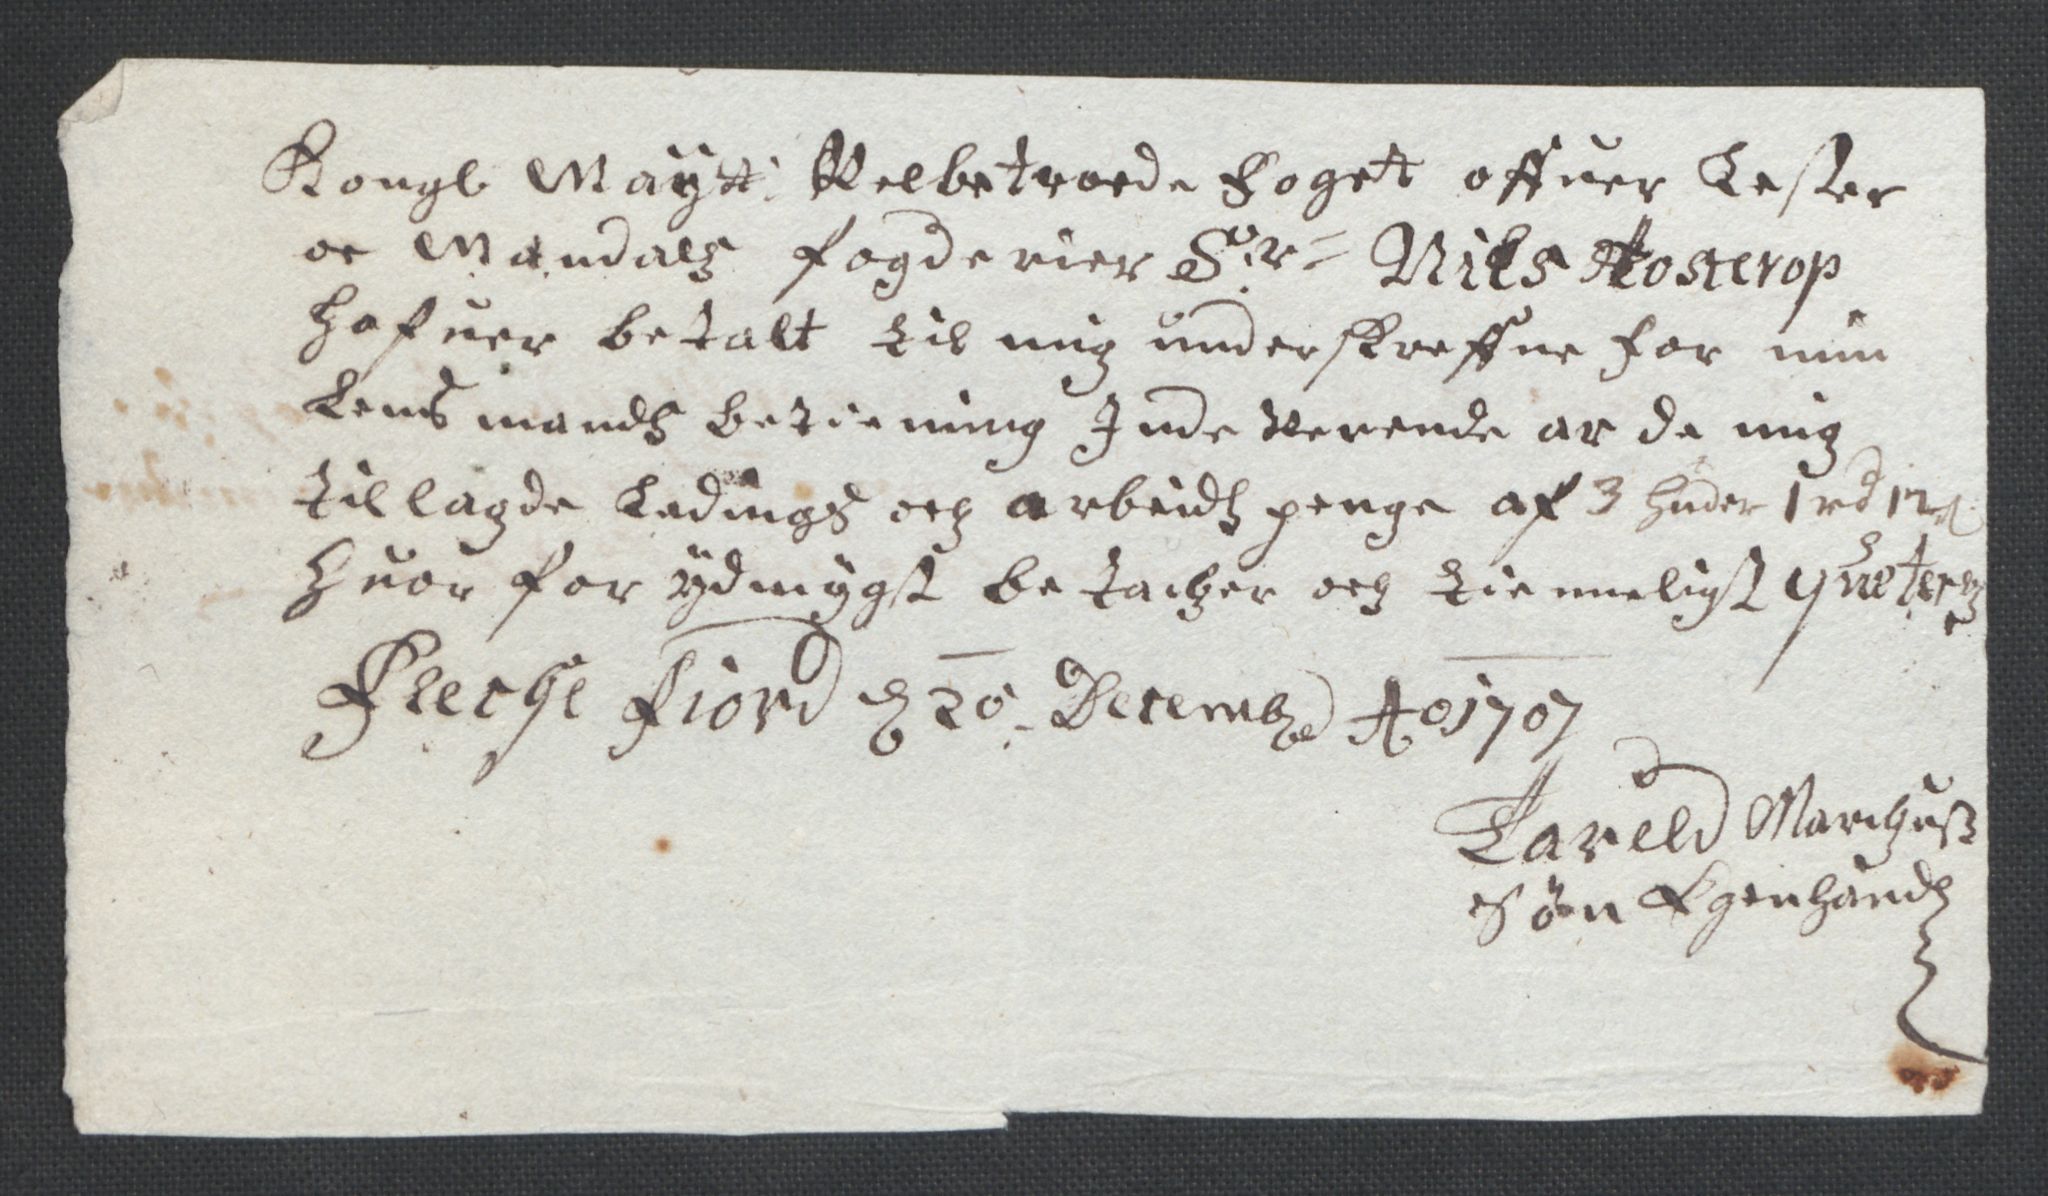 Kongl Maÿtt: Velbetroede Foget offuer Lester
oc Mandals fogderier Sr= Nils Kosterop
hafuer betalt til mig underskreffne for min
Lens mands betiening Indeverende ar de mig
tillagde Ledings och arbeids penge af 3 huder 1 rd 12 s
huor for ÿdmÿgst betacher och tienneligst
Fleche Fiord d 20 Decembr Ao 1707
Tareld Marchuss
Søn Egenhand